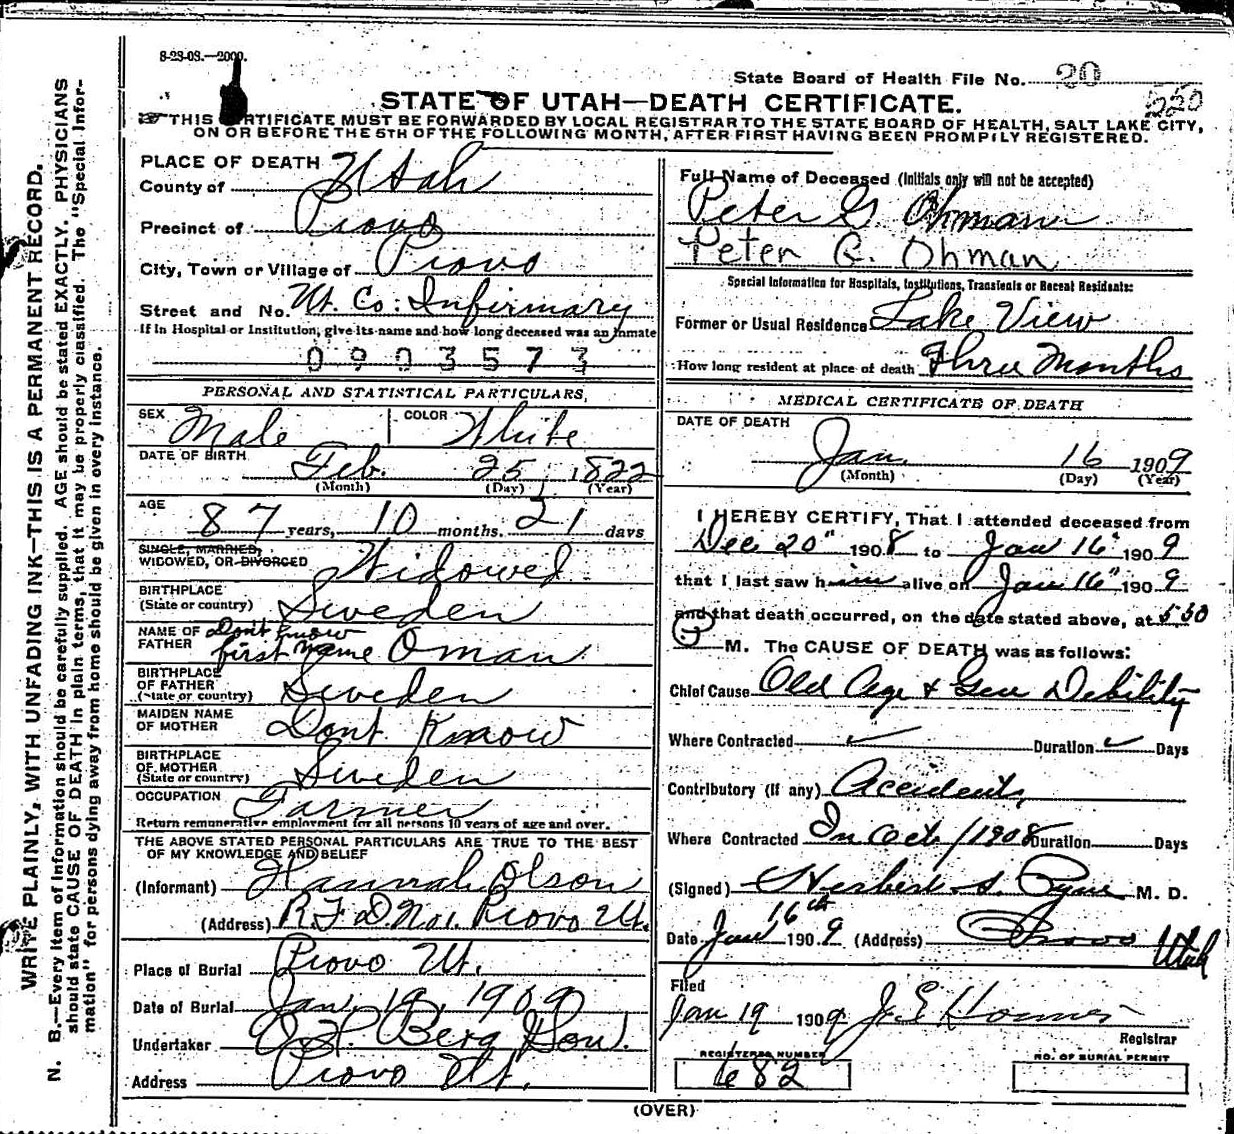 8-23-08.—2000.
State Board of Health File No. 20
550
STATE OF UTAH—DEATH CERTIFICATE.
THIS CERTIFICATE MUST BE FORWARDED BY LOCAL REGISTRAR TO THE STATE BOARD OF HEALTH, SALT LAKE CITY,
ON OR BEFORE THE 5TH OF THE FOLLOWING MONTH, AFTER FIRST HAVING BEEN PROMPTLY REGISTERED.
WRITE PLAINLY, WITH UNFADING INK—THIS IS A PERMANENT RECORD.
N. B.—Every item of Information should be carefully supplied. AGE should be stated EXACTLY. PHYSICIANS
should state CAUSE OF DEATH in plain terms, that it may be properly classified. The "Special Infor-
mation" for persons dying away from home should be given in every instance.
PLACE OF DEATH
County of Utah
Precinct of Provo
City, Town or Village of Provo
Street and No. Ut. Co. Infirmary
If in Hospital or Institution, give its name and how long deceased was an inmate
0903573
PERSONAL AND STATISTICAL PARTICULARS,
SEX Male COLOR White
DATE OF BIRTH Feb. 25, 1822
(Month) (Day) (Year)
AGE 87 years, 10 months. 21 days
SINGLE, MARRIED,
WIDOWED, OR DIVORCED Widowed
BIRTHPLACE
(State or country) Sweden
NAME OF FATHER Dont know
first name Oman
BIRTHPLACE
OF FATHER
(State or country) Sweden
MAIDEN NAME
OF MOTHER Dont Know
BIRTHPLACE
OF MOTHER
(State or country) Sweden
OCCUPATION Farmer
Return remunerative employment for all persons 10 years of age and over.
THE ABOVE STATED PERSONAL PARTICULARS ARE TRUE TO THE BEST
OF MY KNOWLEDGE AND BELIEF
(Informant) Hannah Olson
(Address) R F D. No 1. Provo Ut.
Place of Burial Provo Ut.
Date of Burial Jan, 19, 1909
Undertaker Berg Son.
Address Provo Ut.
Full Name of Deceased (Initials only will not be accepted)
Peter G. Ohman
Peter G. Ohman
Special Information for Hospitals, Institutions, Transients or Recent Residents:
Former or Usual Residence Lake View
How long resident at place of death Three Months
MEDICAL CERTIFICATE OF DEATH
DATE OF DEATH
Jan. 16 1909
(Month) (Day) (Year)
I HEREBY CERTIFY, That I attended deceased from
Dec 20" 1908 to Jan 16" 1909
that I last saw him alive on Jan 16" 1909
and that death occurred, on the date stated above, at 5 30
M. The CAUSE OF DEATH was as follows:
Chief Cause Old Age & Gen Debility
Where Contracted ✓ Duration ✓ Days
Contributory (if any) Accident,
Where Contracted In Oct/1908 Duration Days
(Signed) Herbert S. Pyne M. D.
Date Jan 16th 1909 (Address) Provo Utah
Filed
Jan 19 1909 J. E.
Registrar
REGISTERED NUMBER
682
NO. OF BURIAL PERMIT
(OVER)